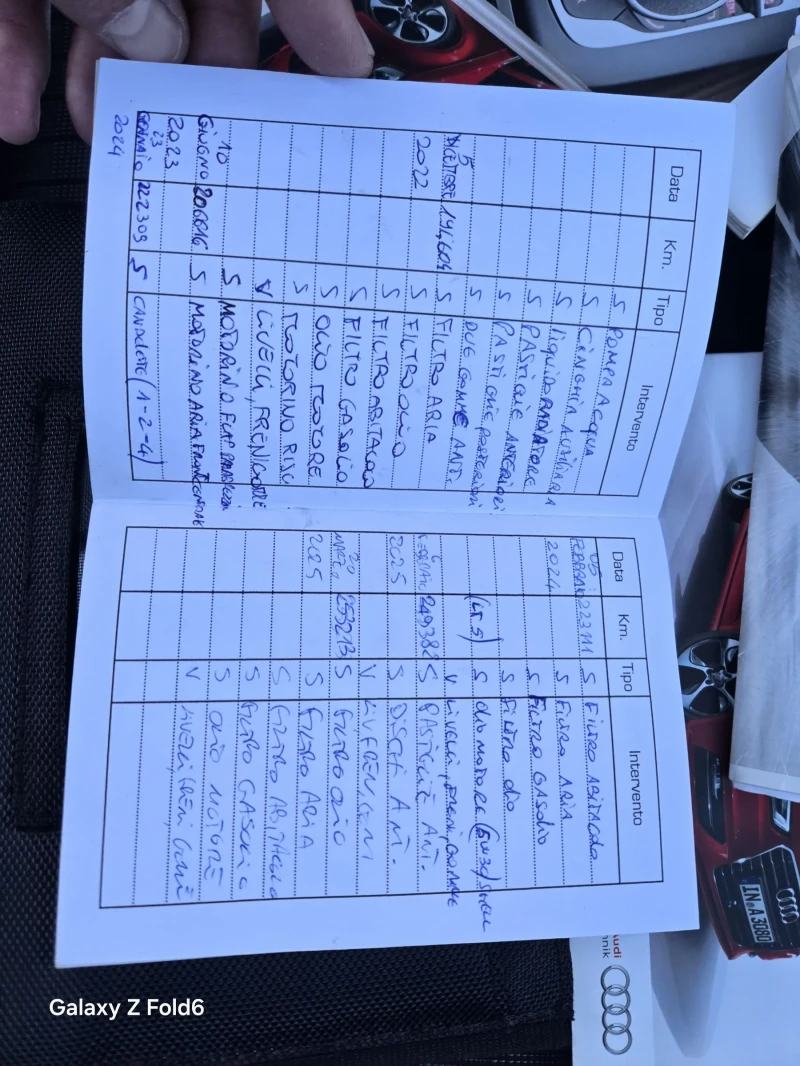 Data Km. Tipo Intervento
S POMPA ACQUA
S CINGHIA AUSILIARIA
S LIQUIDO RADIATORE
S PASTIGLIE ANTERIORI
S PASTIGLIE POSTERIORI
S DUE GOMME ANT.
5
DICEMBRE 191.604 S FILTRO ARIA
2022 S FILTRO OLIO
S FILTRO ABITACOLO
S FILTRO GASOLIO
S OLIO MOTORE
S MOTORINO RISC.
V LIVELLI, FRENI, GOMME
10
GIUGNO 206616 S MOTORINO
2023 S MOTORINO ARIA
23
GENNAIO 222309 S CANDELETTE (1-2-4)
2024
Data Km. Tipo Intervento
05
FEBBRAIO 223111 S FILTRO ABITACOLO
2024 S FILTRO ARIA
S FILTRO GASOLIO
S FILTRO OLIO
(LT 5) S OLIO MOTORE (5W30) SHELL
V LIVELLI, FRENI, GOMME
6
249382 S PASTIGLIE ANT.
2025 S DISCHI ANT.
V LIV. FRENI, GOM
20
MARZO 253213 S FILTRO OLIO
2025 S FILTRO ARIA
S FILTRO ABITACOLO
S FILTRO GASOLIO
S OLIO MOTORE
V LIVELLI, FRENI, GOMME
IN·A 3080
Audi
hnik
Galaxy Z Fold6